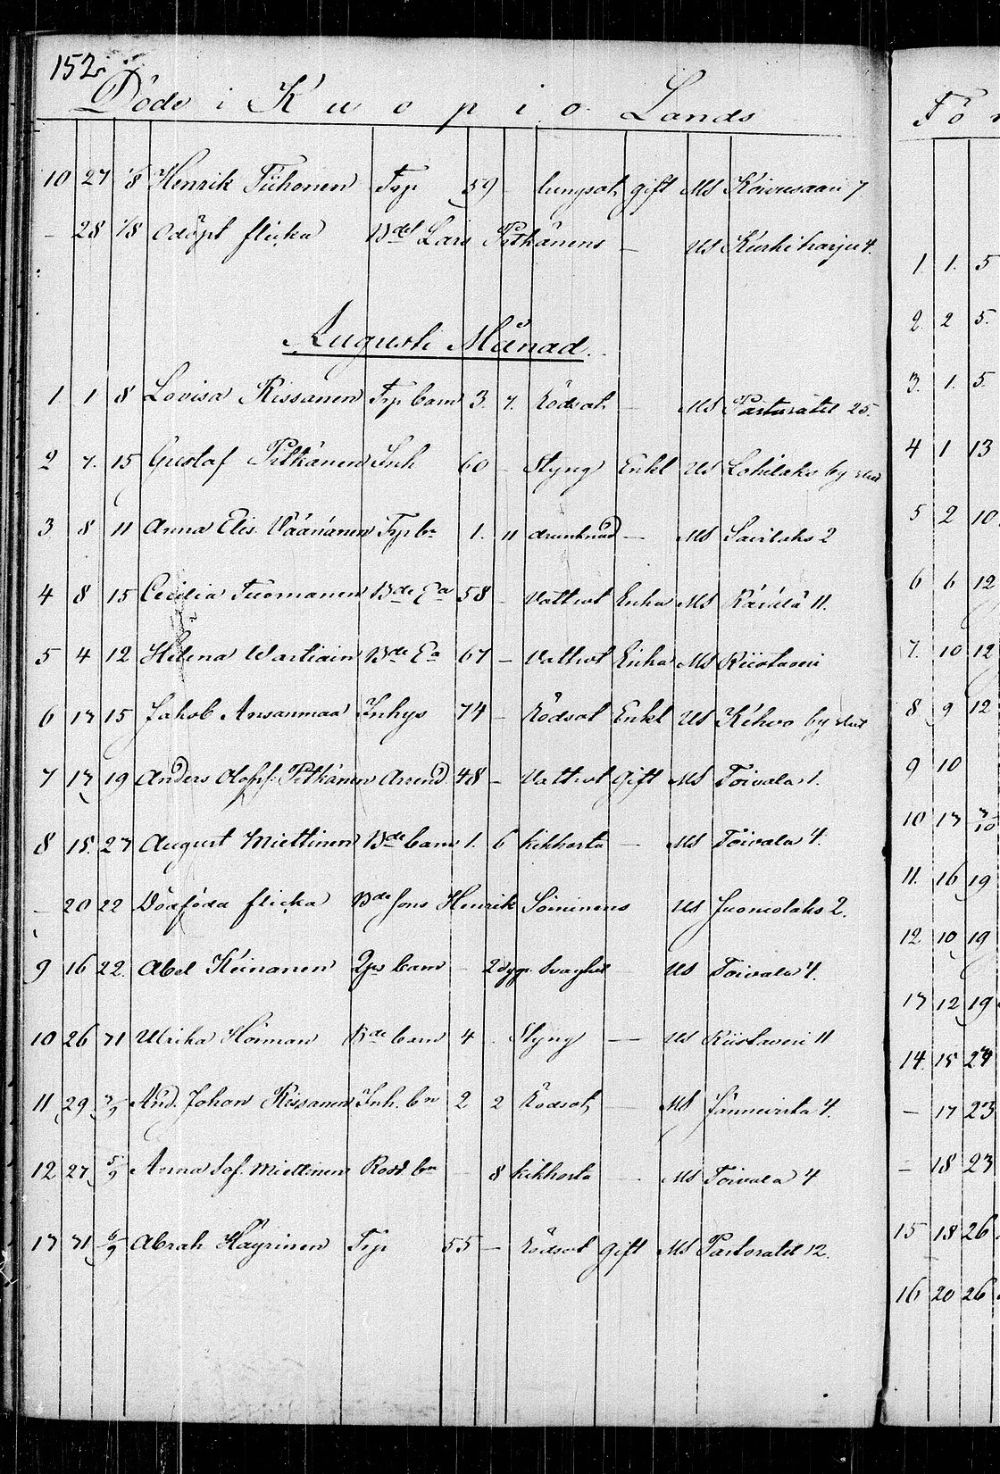 152.
Döde i Kuopio Lands
10 27 1/8 Henrik Tiihonen Trp 59 - lungsot, gift Ms Koivusaari 7
- 28 1/8 Odöpt flicka Bdes Lars Pitkänens - Us Kurkiharju 4.
Augusti Månad.
1 1 8 Lovisa Rissanen Trp barn 3. 7. Rödsot - Ms Pastoratet 25.
2 7. 15 Gustaf Pitkänen Inh 60 - Styng Enkl Us Lohilaks by
3 8 11 Anna Elis. Väänänen Trp bn 1. 11 drunknad - Ms Savilaks 2
4 8 15 Cecilia Tuomanen Bde Ea 58 - Vattsot Enka Ms Räsälä 11.
5 4 12 Helena Wartiain Bde Ea 67 - Vattsot Enka Ms Riistaveri
6 13 15 Jakob Ansanmaa Inhys 74 - Rödsot Enkl Us Kehvo by
7 13 19 Anders Olof Pitkänen Arrend 48 - Vattsot Gift Ms Toivala 1.
8 15. 23 August Miettinen Bde barn 1. 6 Kikhosta - Ms Toivala 4.
- 20 22 Dödföda flicka Bde sons Henrik Soininens Us Juonolaks 2.
9 16 22. Abel Keinanen barn - 2 dygn Svaghet Us Toivala 4.
10 26 31 Ulrika Hoiman Bde barn 4 . Styng - Us Riistaveri 11
11 29 3/9 And. Johan Rissanen Inh. bn 2 2 Rödsot, - Ms Jännevirta 4.
12 27 5/9 Anna Sof. Miettinen bn - 8 Kikhosta - Ms Toivala 4
13 31 6/9 Abrah Käyrinen Trp 55 - Rödsot gift Ms Pastoratet 12.
Fö
1 1. 5
2 2 5.
3. 1. 5.
4 1 13
5 2 10
6 6 12
7. 10 12
8 9 12
9 10
10 13
11. 16 19
12 10 19
13 12 19
14. 15 23
- 17 23
- 18 23
15 18 26
16 20 26